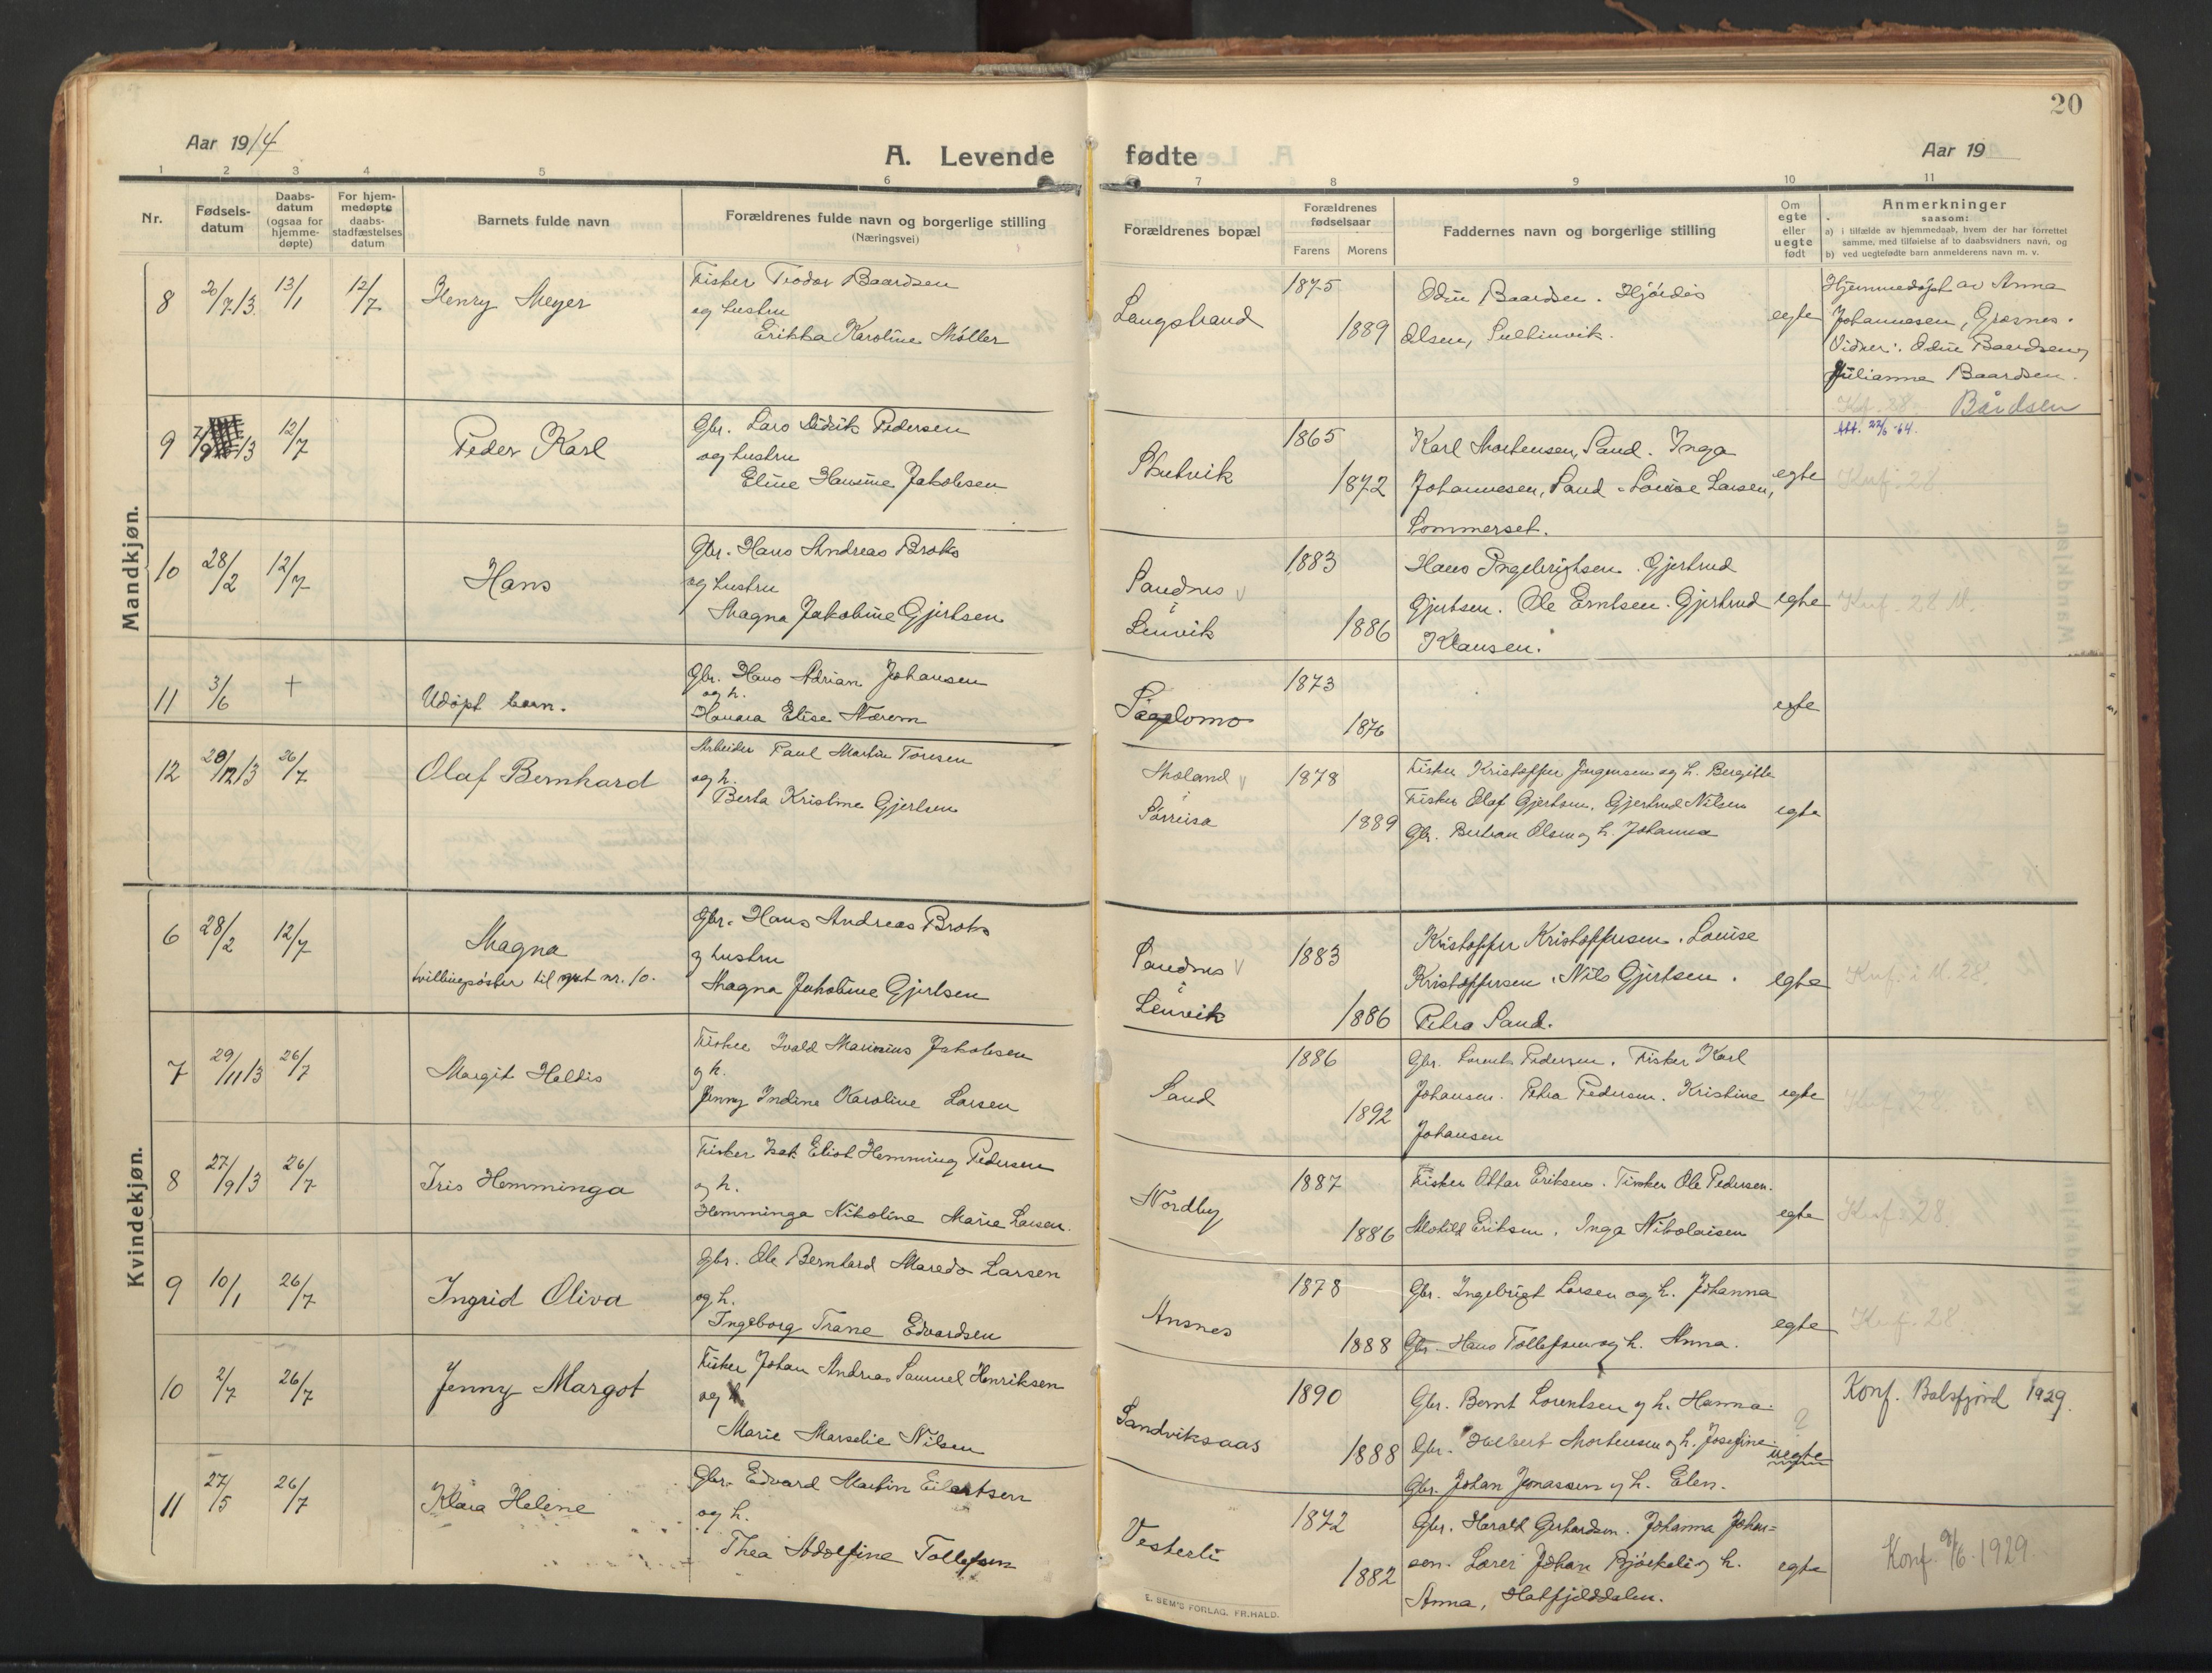 20
Aar 1914
A. Levende fødte
Aar 19
1 2 3 4 5 6 7 8 9 10 11
Nr.
Fødsels-
datum
Daabs-
datum
(ogsaa for
hjemme-
døpte)
For hjem-
medøpte
daabs-
stadfæstelses
datum
Barnets fulde navn
Forældrenes fulde navn og borgerlige stilling
(Næringsvei)
Forældrenes bopæl
Forældrenes
fødselsaar
Farens Morens
Faddernes navn og borgerlige stilling
Om
egte
eller
uegte
født
Anmerkninger
saasom:
a) i tilfælde av hjemmedaab, hvem der har forrettet
samme, med tilføielse af to daabsvidners navn, og
b) ved uegtefødte barn anmelderens navn m. v.
Mandkjøn.
8 20/7 13 13/1 12/7 Henry Meyer
Fisker Teodor Baardsen
og hustru
Erikka Karoline Møller
Langstrand
1875
1889
Odin Baardsen. Hjørdis
Olsen, Sultinvik.
egte
Hjemmedøpt av Anna
Johannesen, Græsnes.
Vidner: Odin Baardsen og
Julianna Baardsen.
Kf. 28. Bårdsen
Att. 22/6-64.
9 13 12/7 Peder Karl
Gbr. Lars Didrik Pedersen
og hustru
Eline Hansine Jakobsen
Skutvik
1865
1872
Karl Mortensen, Sand. Inga
Johannesen, Sand. Louise Larsen,
Sommerset.
egte
Knf. 28.
10 28/2 12/7 Hans
Gbr. Hans Andreas Broks
og hustru
Magna Jakobine Gjertsen
Sandnes
i
Lenvik
1883
1886
Hans Ingebrigtsen. Gjertrud
Gjertsen. Ole Erntsen. Gjertrud
Klausen.
egte
Knf. 28 M.
11 3/6 + Udøpt barn.
Gbr. Hans Adrian Johansen
og h.
Hanna Elise Nærem
1873
1876
egte
12 29/12 13 26/7 Olaf Bernhard
Arbeider Paul Martin Toresen
og h.
Berta Kristine Gjertsen
Moland
i
Sørreisa
1878
1889
Fisker Kristoffer Jørgensen og h. Bergitte
Fisker Olaf Gjertsen. Gjertrud Nilsen
Gbr. Bertran Olsen og h. Johanna
egte
Kvindekjøn.
6 28/2 12/7 Magna
tvillingsøster til gut nr. 10.
Gbr. Hans Andreas Broks
og hustru
Magna Jakobine Gjertsen
Sandnes
i
Lenvik
1883
1886
Kristoffer Kristoffersen. Louise
Kristoffersen. Nils Gjertsen.
Petra Sand.
egte
Knf. i M. 28.
7 29/11 13 26/7 Margit Haldis
Fisker Ivald Marinius Jakobsen
og h.
Jenny Indine Karoline Larsen
Sand
1886
1892
Gbr. Lorents Pedersen. Fisker Karl
Johansen. Petra Pedersen. Kristine
Johansen
egte
Knf. 28.
8 27/9 13 26/7 Iris Hemminga
Fisker Isak Eliot Hemming Pedersen
og h.
Hemminga Nikoline Marie Larsen.
Nordby
1887
1886
Fisker Ottar Eriksen. Fisker Ole Pedersen.
Motild Eriksen. Inga Nikolaisen
egte
Knf. 28.
9 10/1 26/7 Ingrid Oliva
Gbr. Ole Bernhard Maredo Larsen
og h.
Ingeborg Trane Edvardsen
Ansnes
1878
1888
Gbr. Ingebrigt Larsen og h. Johanna
Gbr. Hans Tollefsen og h. Anna.
egte
Knf. 28
10 2/7 26/7 Jenny Margot
Fisker Johan Andreas Samuel Henriksen
og
Marie Marselie Nilsen
Sandviksaas
1890
1888
Gbr. Bernt Lorentsen og h. Hanna.
Gbr. Halbert Mortensen og h. Josefine.
Gbr. Johan Jonassen og h. Elen.
?
uegte
Konf. Balsfjord 1929.
11 27/5 26/7 Klara Helene
Gbr. Edvard Martin Eilertsen
og h.
Thea Adolfine Tollefsen
Vesterli
1872
1882
Gbr. Harald Gerhardsen. Johanna Johan=
sen. Lærer Johan Bjørkeli og h.
Anna, Hatfjelddalen.
egte
Konf. 9/6. 1929.
E. SEM'S FORLAG. FR.HALD.